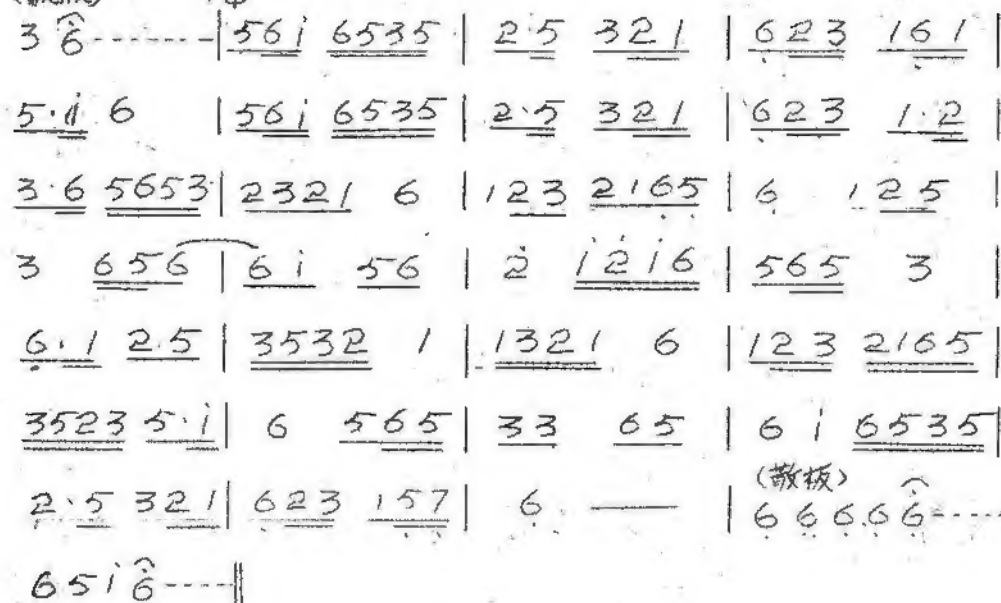 3 6------|561̇ 6535|2·5 321|6̣23 16̣1|
5·1̇ 6 |561̇ 6535|2·5 321|6̣23 1·2|
3·6 5653|2321 6|123 216̣5̣|6̣ 125|
3 656|61̇ 56|2̇ 1̇2̇1̇6|565 3|
6̣·1 2·5|3532 1|1321 6|123 2165|
3523 5·1̇|6 565|33 65|61̇ 6535|
(散板)
2·5 321|6̣23 15̣7̣|6̣ —|6̣6̣6̣6̣6̣-----
651̇6----‖